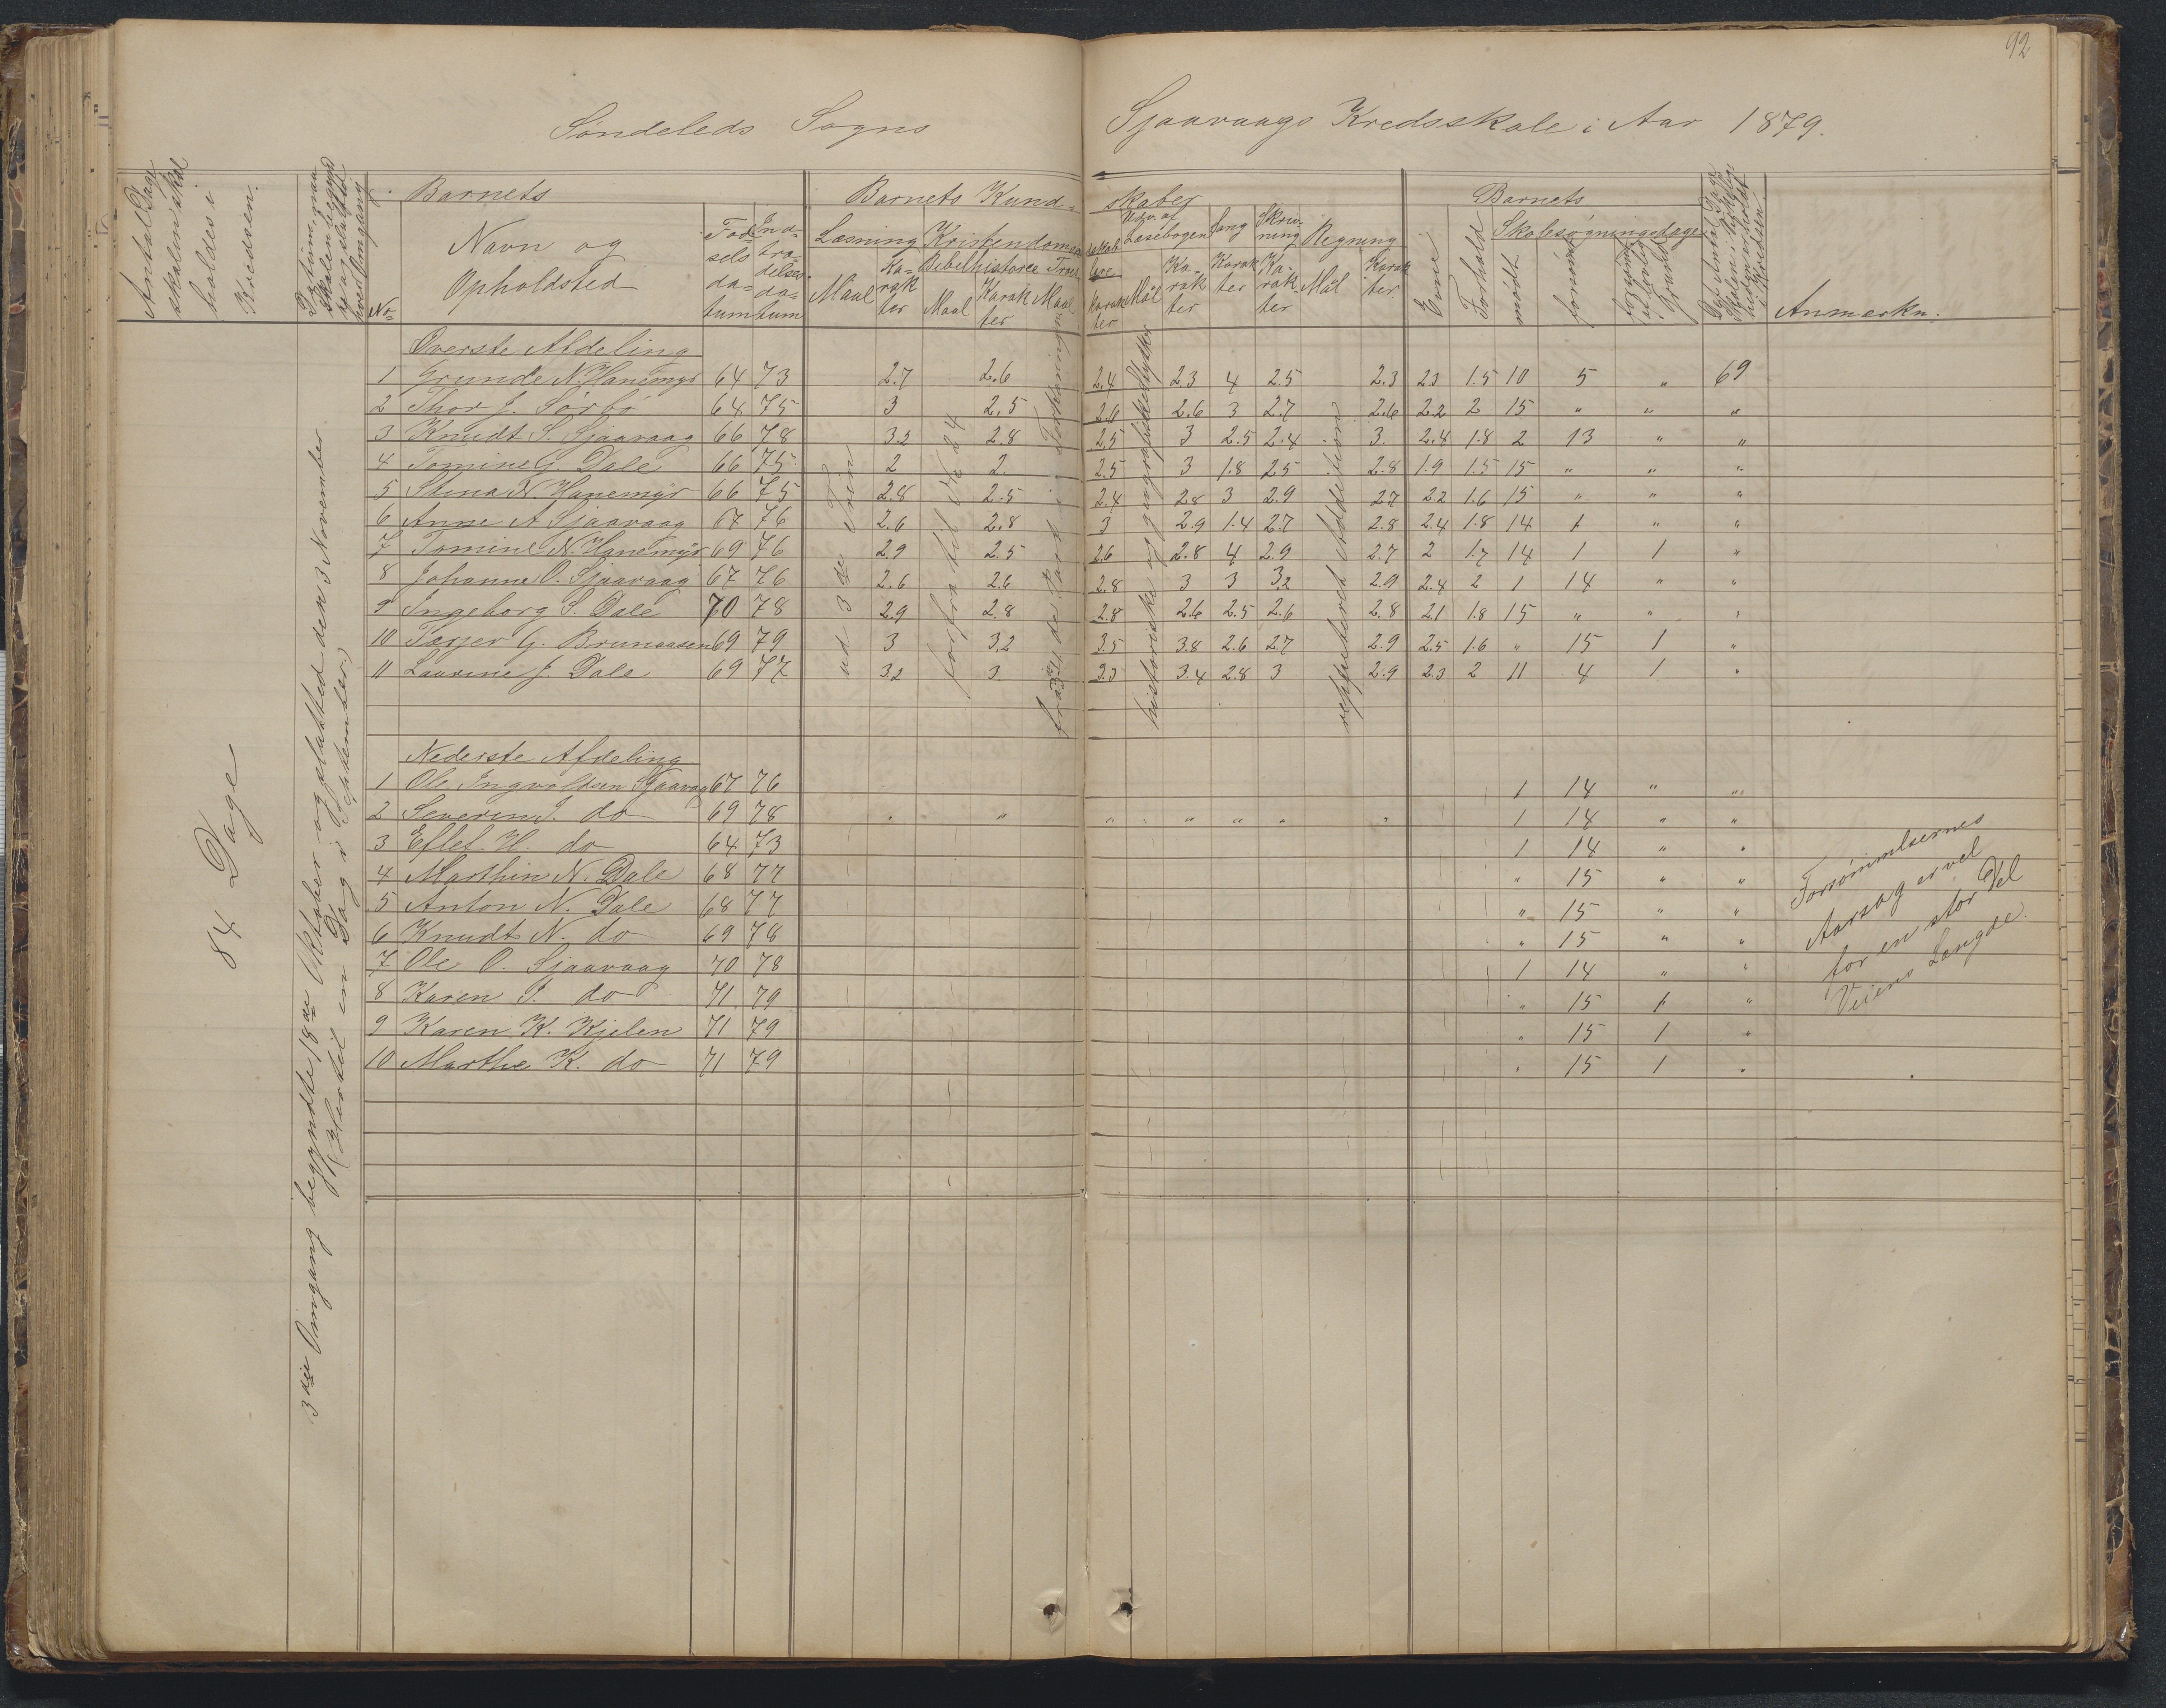 92
Söndeleds Sogns Sjaavaags Kredsskole i Aar 1879.
Antal Dage skolen skal holdes i Kredsen.
Datum, naar Skolen begyndte og sluttede hver Omgang
No
Barnets
Navn og Opholdsted
Födselsdatum
Indtrædelsesdatum
Barnets Kundskaber
Læsning
Maal
Karakter
Kristendomskundskab
Bibelhistorie
Maal
Karakter
Troeslære
Maal
Karakter
Udv. af Læsebogen
Mål
Karakter
Sang
Karakter
Skrivning
Karakter
Regning
Mål
Karakter
Barnets
Evne
Forhold
Skolesøgningsdage
mödt
forsömt
forsömt af lovlig Grund
Det Antal Dage Skolen i Virkeligheden er holdt i Kredsen
Anmærkn.
84 Dage
3die Omgang begyndte 18de Oktober og slutted den 3 November.
(Hertil en Dag i September)
Överste Afdeling
1 Grunde N. Hanemyr 64 73 2.7 2.6 2.4 2.3 4 2.5 2.3 2.3 1.5 10 5 " 69
2 Thor J. Sörbö 64 75 3 2.5 2.6 2.6 3 2.7 2.6 2.2 2 15 " " "
3 Knudt S. Sjaavaag 66 78 3.2 2.8 2.5 3 2.5 2.4 3. 2.4 1.8 2 13 " "
4 Tomine G. Dale 66 75 2 2. 2.5 3 1.8 2.5 2.8 1.9 1.5 15 " " "
5 Stina N. Hanemyr 66 75 2.8 2.5 2.4 2.8 3 2.9 2.7 2.2 1.6 15 " " "
6 Anne A Sjaavaag 67 76 2.6 2.8 3 2.9 1.4 2.7 2.8 2.4 1.8 14 1 " "
7 Tomine N. Hanemyr 69 76 2.9 2.5 2.6 2.8 4 2.9 2.7 2 1.7 14 1 1 "
8 Johanne O. Sjaavaag 67 76 2.6 2.6 2.8 3 3 3.2 2.9 2.4 2 1 14 " "
9 Ingeborg S. Dale 70 78 2.9 2.8 2.8 2.6 2.5 2.6 2.8 2.1 1.8 15 " " "
10 Tarjer G. Brunaasen 69 79 3 3.2 3.5 3.8 2.6 2.7 2.9 2.5 1.6 " 15 1 "
11 Laurine J. Dale 69 77 3.2 3 3.3 3.4 2.8 3 2.9 2.3 2 11 4 1 "
ud 3de Trin
forfra til No 24
historiske og geografiske Stykker
reppeteret Addition
Nederste Afdeling
1 Ole Ingvoldsen Sjaavaag 67 76 1 14 " "
2 Severin I. do 69 78 " " " " " " " " 1 14 " "
3 Eflef H. do 64 73 1 14 " "
4 Marthin N. Dale 68 77 " 15 " "
5 Anton N. Dale 68 77 " 15 " "
6 Knudt N. do 69 78 " 15 " "
7 Ole O. Sjaavaag 70 78 1 14 " "
8 Karen I. do 71 79 " 15 1 "
9 Karen K. Kjelen 71 79 " 15 1 "
10 Marthe K. do 71 79 " 15 1 "
Forsömmelsernes
Aarsag er vel
for en stor Del
Veiens Længde.